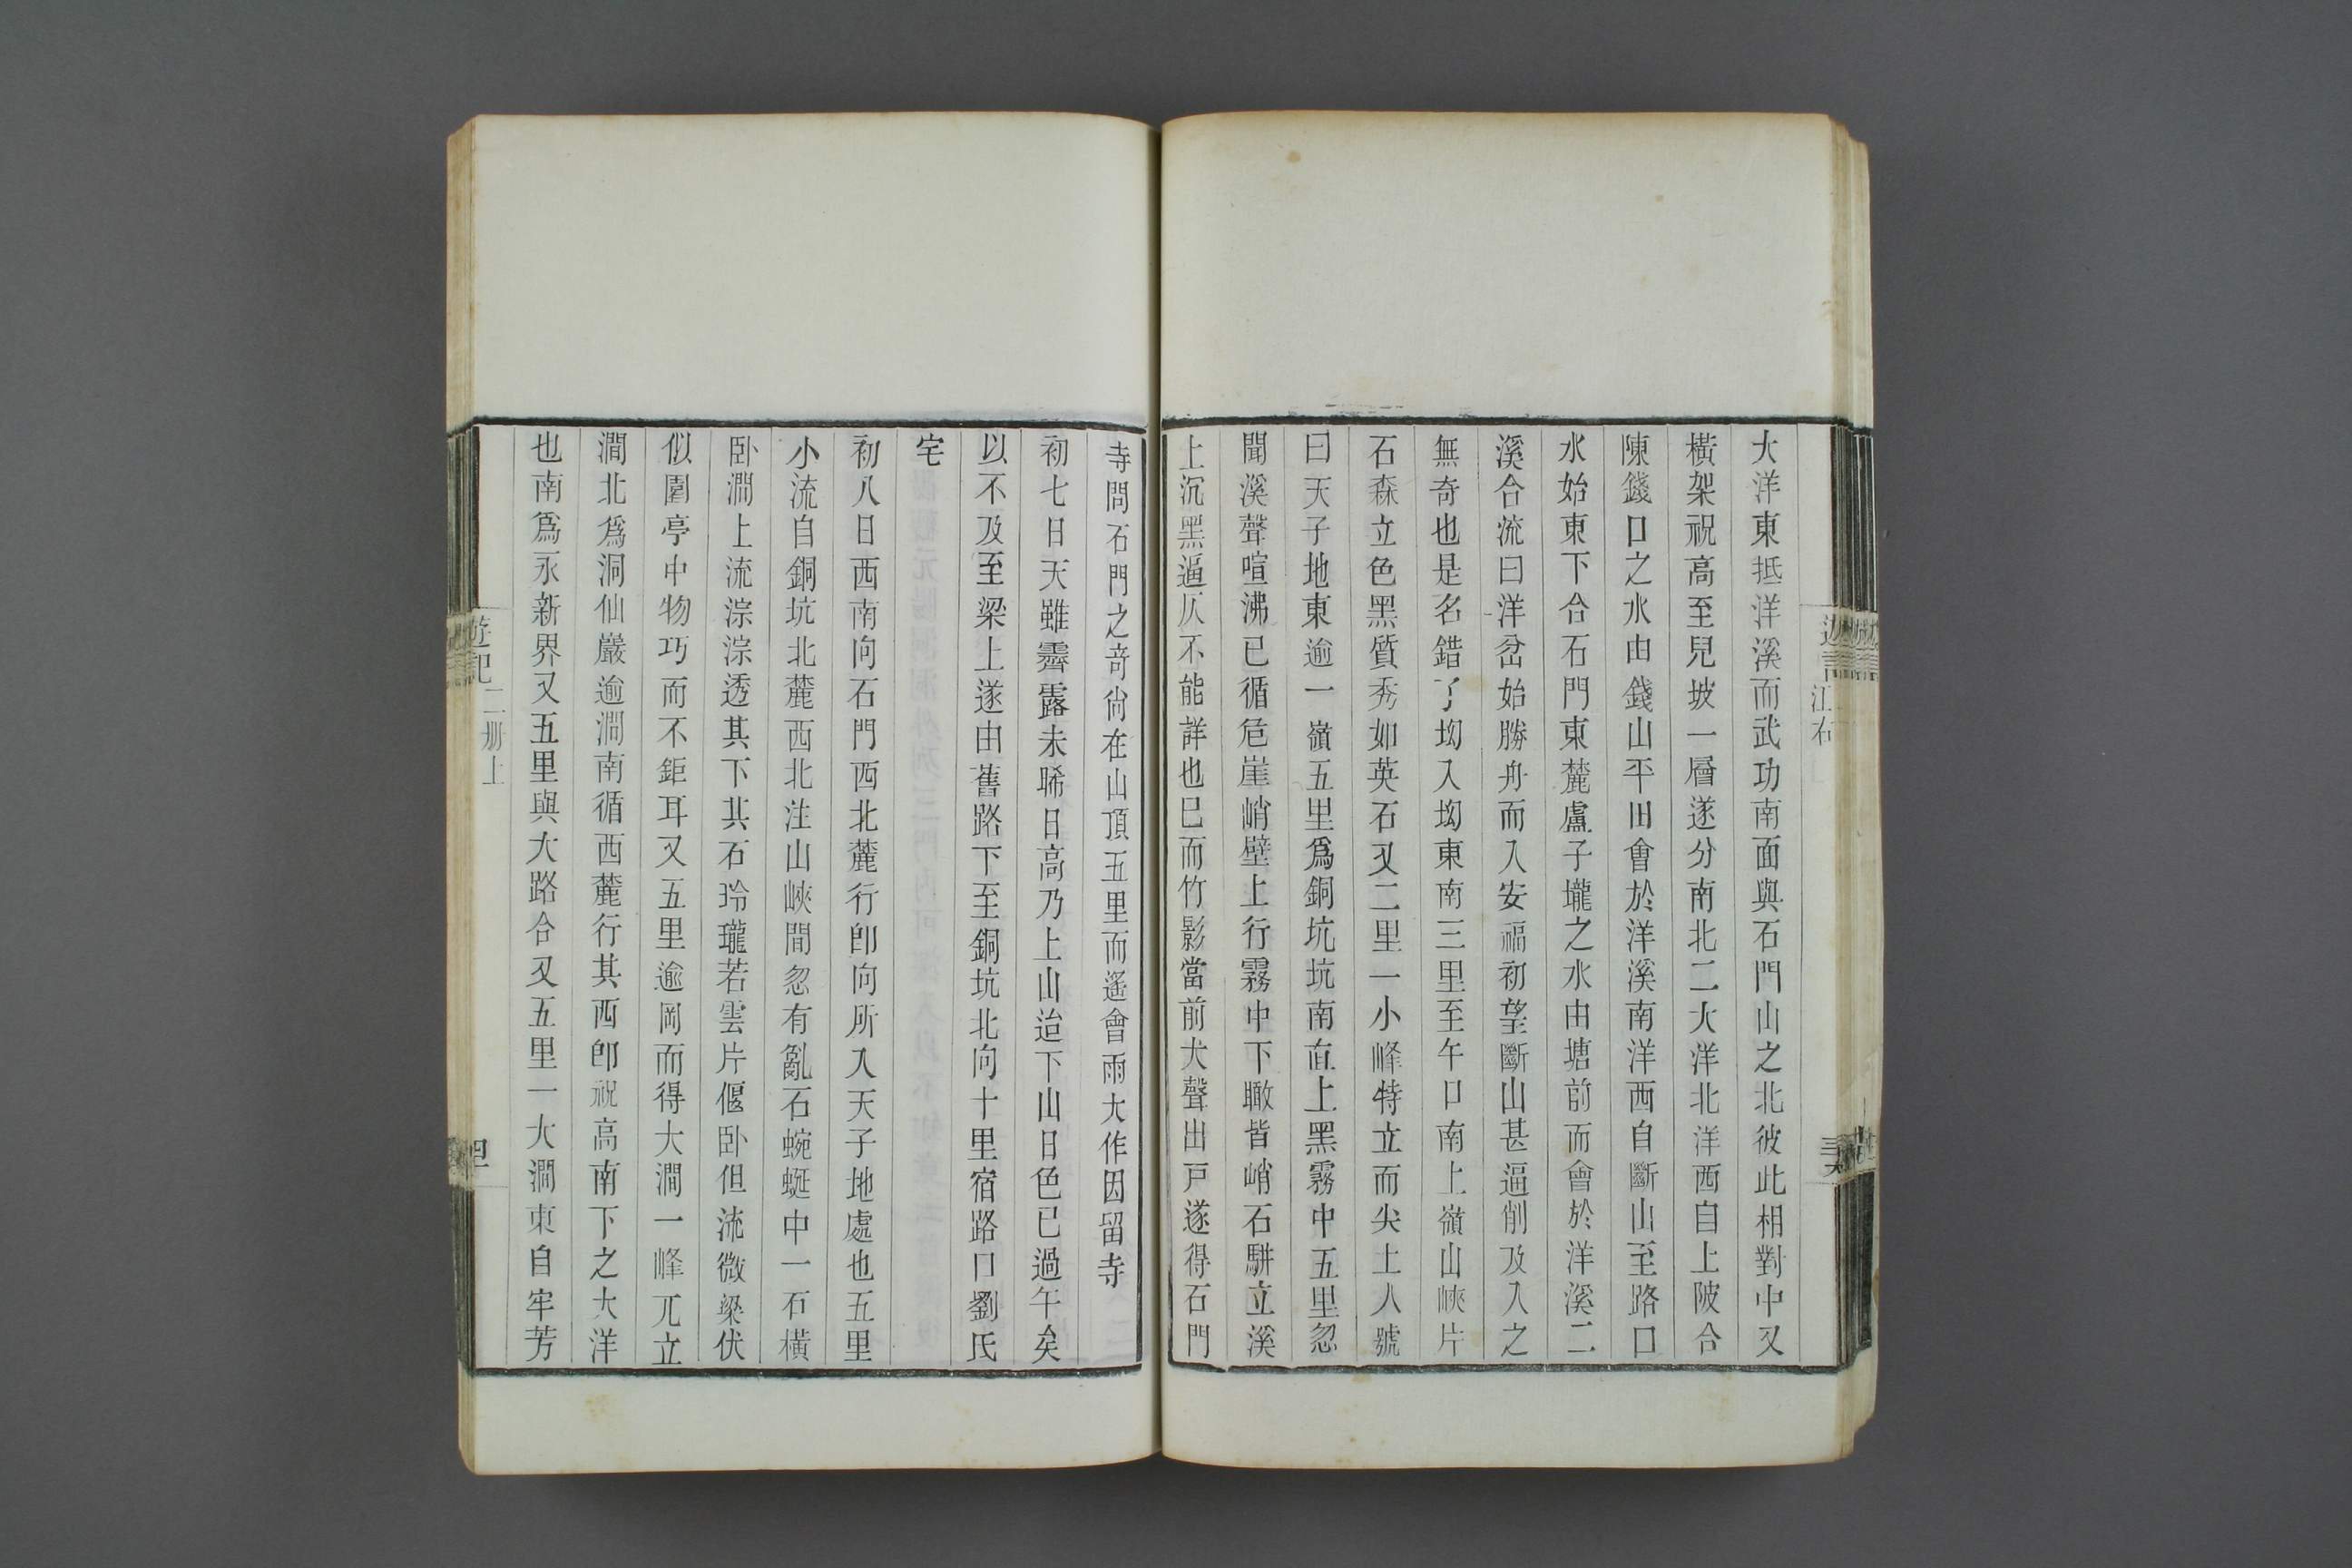 大洋東抵洋溪而武功南面與石門山之北彼此相對中又
橫架祝高至兒坡一層遂分南北二大洋北洋西自上陂合
陳錢口之水由錢山平田會於洋溪南洋西自斷山至路口
水始東下合石門東麓盧子壠之水由塘前而會於洋溪二
溪合流曰洋岔始勝舟而入安福初望斷山甚逼削及入之
無奇也是名錯了坳入坳東南三里至午口南上嶺山峽片
石森立色黑質秀如英石又二里一小峰特立而尖土人號
曰天子地東逾一嶺五里爲銅坑坑南直上黑霧中五里忽
聞溪聲喧沸已循危崖峭壁上行霧中下瞰皆峭石駢立溪
上沉黑逼仄不能詳也已而竹影當前犬聲出戸遂得石門
寺問石門之奇尙在山頂五里而遙會雨大作因留寺
初七日天雖霽露未晞日高乃上山迨下山日色已過午矣
以不及至梁上遂由舊路下至銅坑北向十里宿路口劉氏
宅
初八日西南向石門西北麓行卽向所入天子地處也五里
小流自銅坑北麓西北注山峽間忽有亂石蜿蜒中一石橫
卧澗上流淙淙透其下其石玲瓏若雲片偃卧但流微梁伏
似園亭中物巧而不鉅耳又五里逾岡而得大澗一峰兀立
澗北爲洞仙巖逾澗南循西麓行其西卽祝高南下之大洋
也南爲永新界又五里與大路合又五里一大澗東自牢芳
遊記 二册上
江右